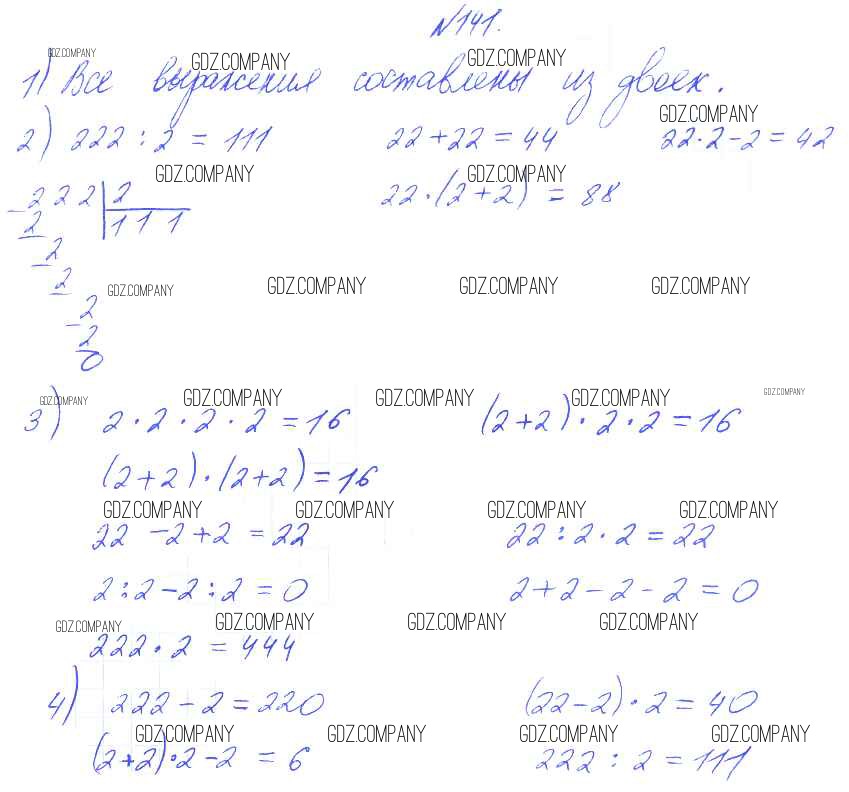 №141.
GDZ.COMPANY GDZ.COMPANY GDZ.COMPANY
1) Все выражения составлены из двоек.
GDZ.COMPANY
2) 222 : 2 = 111 22 + 22 = 44 22 · 2 - 2 = 42
GDZ.COMPANY GDZ.COMPANY
- 222 | 2 22 · (2 + 2) = 88
2 111
- 2
2
GDZ.COMPANY GDZ.COMPANY GDZ.COMPANY GDZ.COMPANY
- 2
2
0
GDZ.COMPANY GDZ.COMPANY GDZ.COMPANY GDZ.COMPANY GDZ.COMPANY
3) 2 · 2 · 2 · 2 = 16 (2 + 2) · 2 · 2 = 16
(2 + 2) · (2 + 2) = 16
GDZ.COMPANY GDZ.COMPANY GDZ.COMPANY GDZ.COMPANY
22 - 2 + 2 = 22 22 : 2 · 2 = 22
2 : 2 - 2 : 2 = 0 2 + 2 - 2 - 2 = 0
GDZ.COMPANY GDZ.COMPANY GDZ.COMPANY GDZ.COMPANY
222 · 2 = 444
4) 222 - 2 = 220 (22 - 2) · 2 = 40
GDZ.COMPANY GDZ.COMPANY GDZ.COMPANY GDZ.COMPANY
(2 + 2) · 2 - 2 = 6 222 : 2 = 111